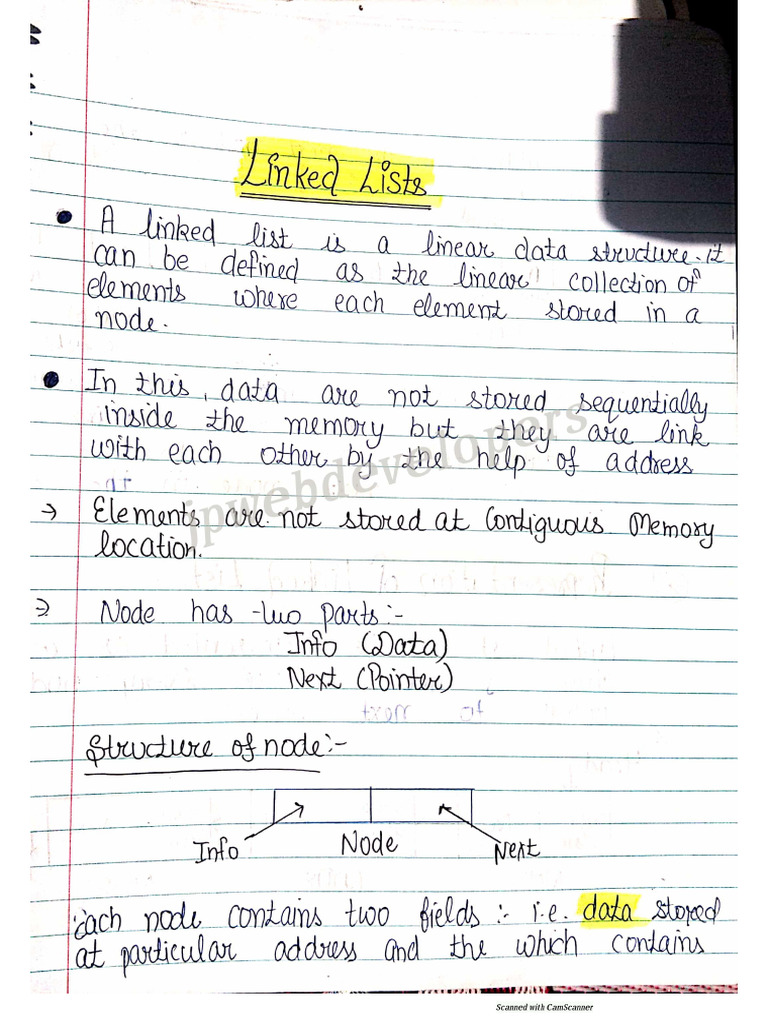 Linked Lists
• A linked list is a linear data structure. it
can be defined as the linear collection of
elements where each element stored in a
node.
• In this, data are not stored sequentially
inside the memory but they are link
with each other by the help of address
jpwebdevelopers
→ Elements are not stored at Contiguous Memory
location.
⇒ Node has two parts:-
Info (Data)
Next (Pointer)
Structure of node:-
Info Node Next
Each node contains two fields :- i.e. data stored
at particular address and the which contains
Scanned with CamScanner